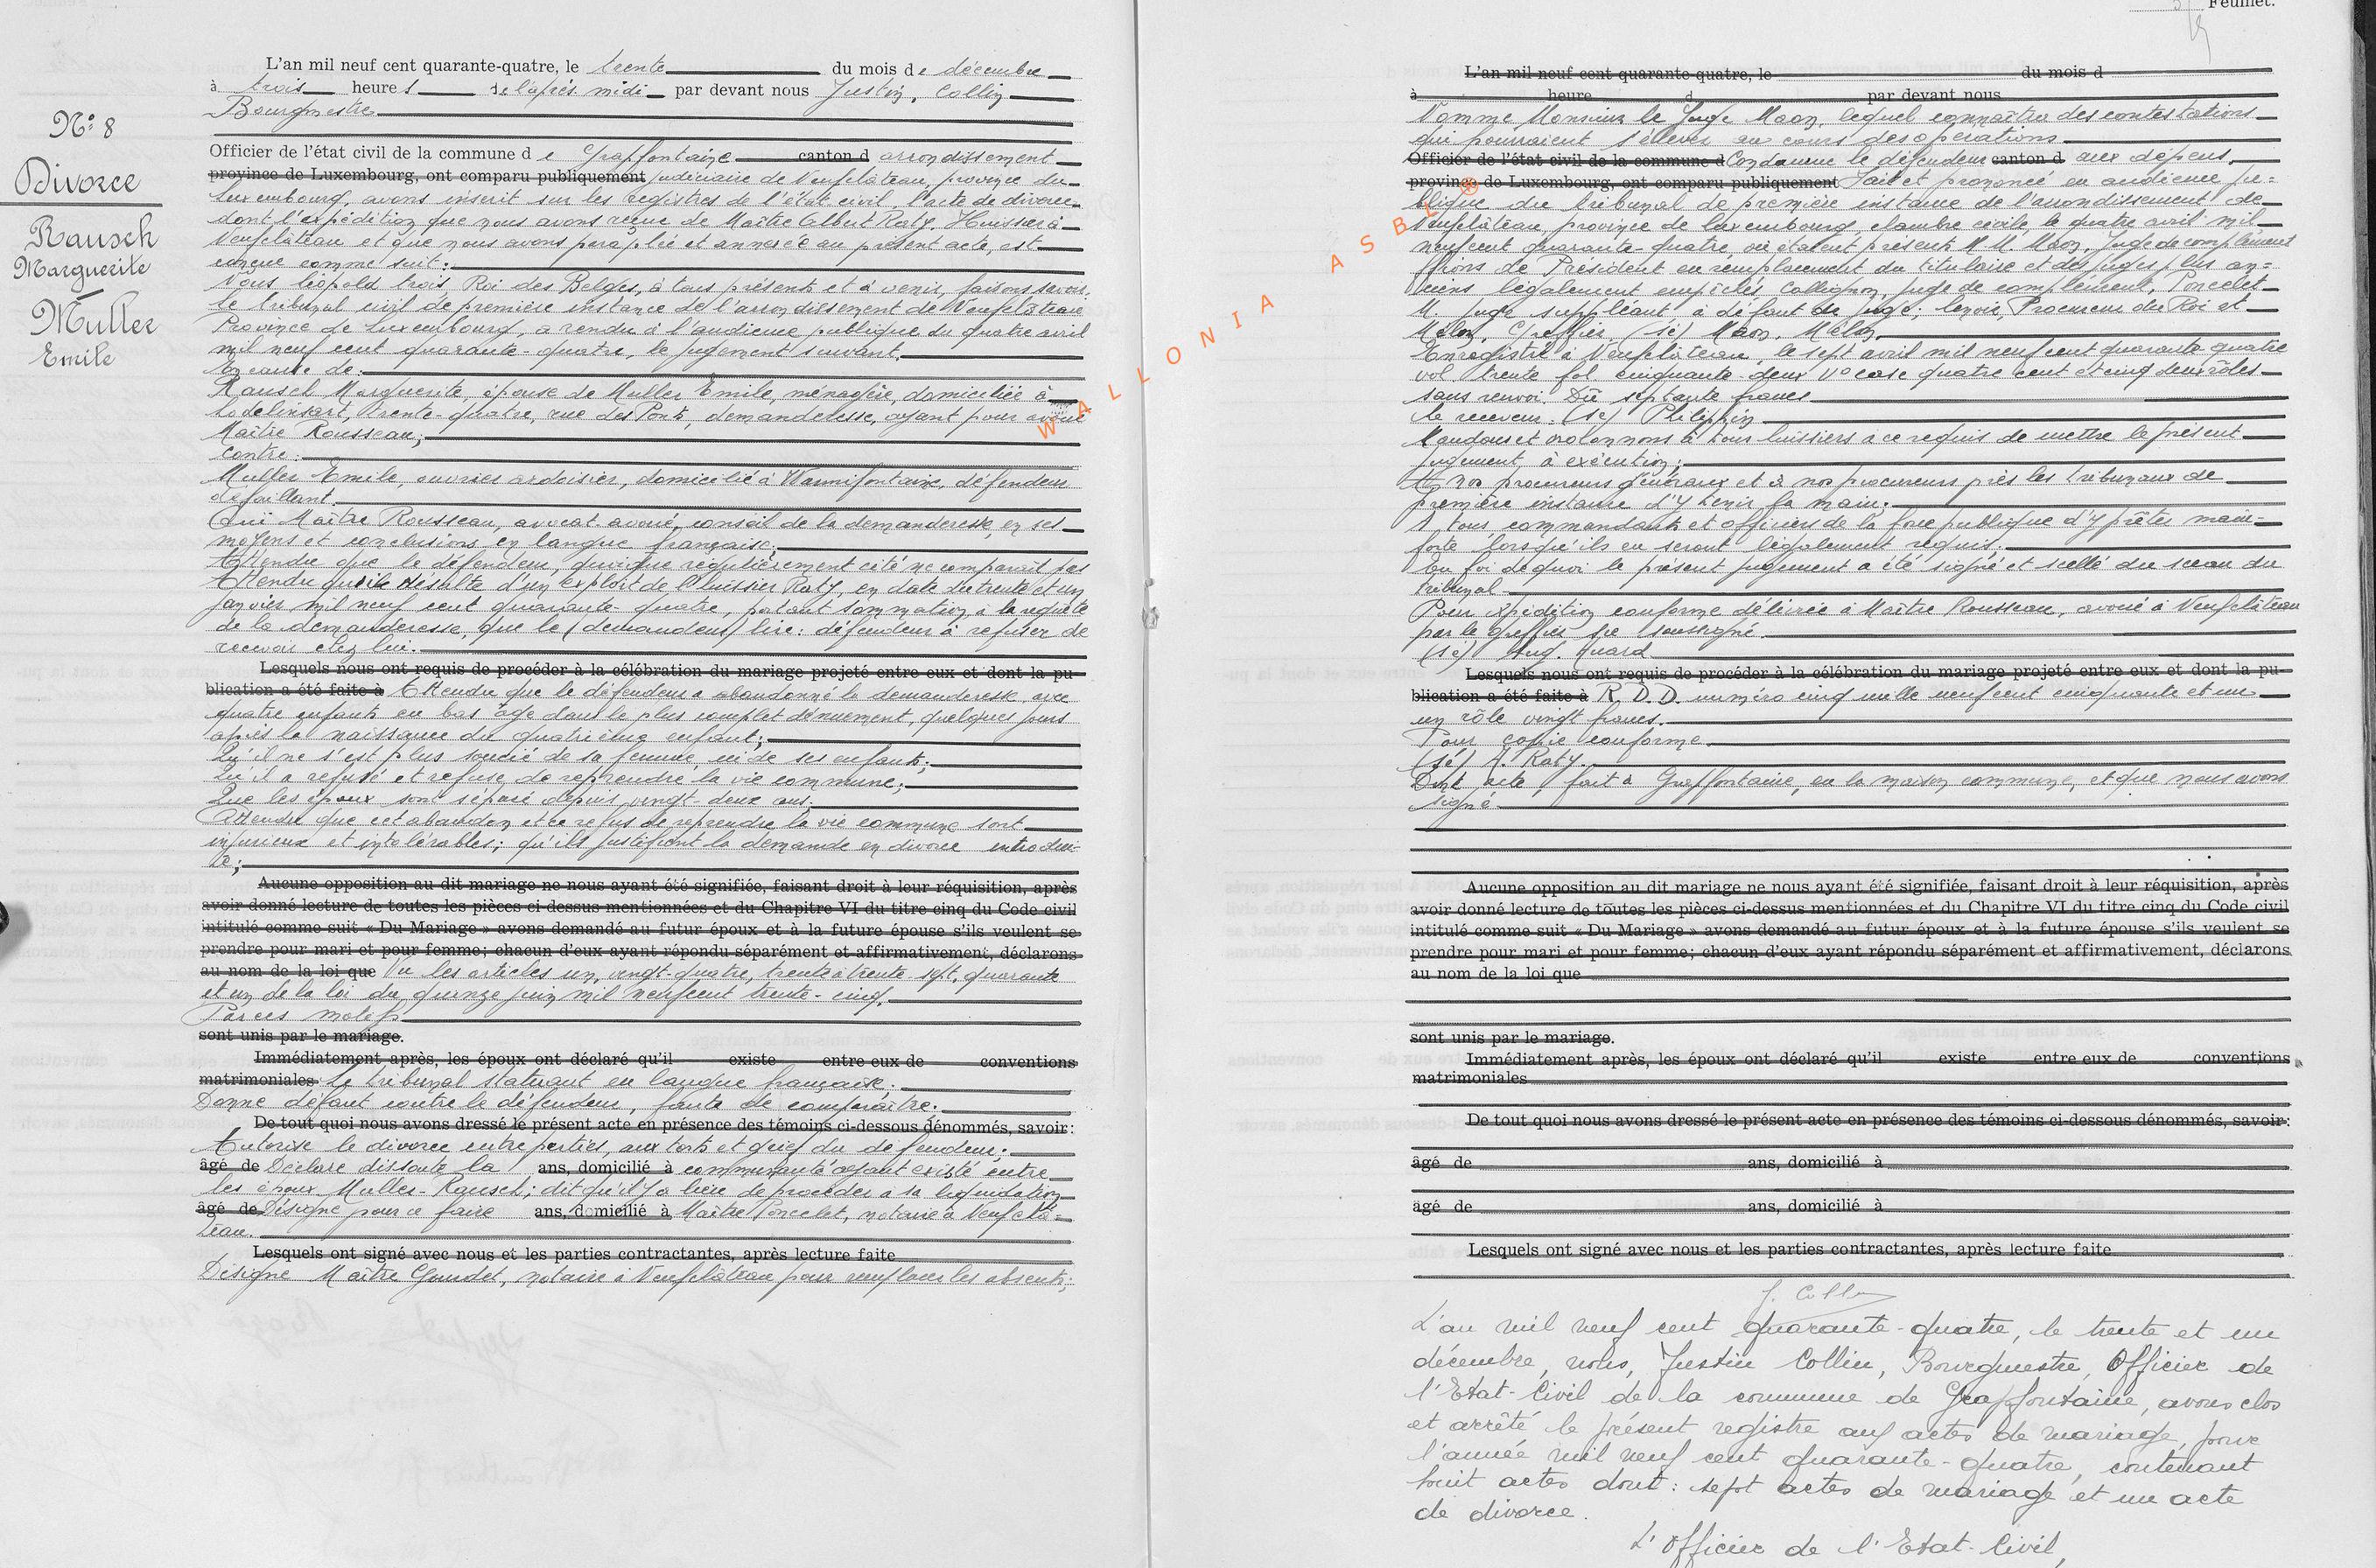 N° 8
Divorce
Rausch
Marguerite
Muller
Emile
L'an mil neuf cent quarante-quatre, le trente du mois de décembre
à trois heures de l'après midi par devant nous Justin, Collin
Bourgmestre
Officier de l'état civil de la commune de Grapfontaine canton d arrondissement
province de Luxembourg, ont comparu publiquement judiciaire de Neufchâteau, province du
Luxembourg, avons inscrit sur les registres de l'état civil, l'acte de divorce
dont l'expédition que nous avons reçue de Maître Albert Raty, Huissier à
Neufchâteau et que nous avons paraphée et annexée au présent acte, est
conçue comme suit:
Nous Léopold trois, Roi des Belges, à tous présents et à venir, faisons savoir:
Le tribunal civil de première instance de l'arrondissement de Neufchâteau
Province de Luxembourg, a rendu à l'audience publique du quatre avril
mil neuf cent quarante-quatre, le jugement suivant.
En cause de:
Rausch Marguerite, épouse de Muller Emile, ménagère, domiciliée à
Lodelinsart, trente-quatre, rue des Ponts, demanderesse, ayant pour avoué
Maître Rousseau;
contre:
Muller Emile, ouvrier ardoisier, domicilié à Warmifontaine, défendeur
défaillant.
Ouï Maître Rousseau, avocat avoué, conseil de la demanderesse, en ses
moyens et conclusions en langue française;
Attendu que le défendeur, quoique régulièrement cité ne comparait pas
Attendu qu'il résulte d'un exploit de l'huissier Raty, en date du trente et un
janvier mil neuf cent quarante-quatre, portant sommation, à la requête
de la demanderesse, que le (demandeur) lire: défendeur a refusé de
recevoir chez lui.
Lesquels nous ont requis de procéder à la célébration du mariage projeté entre eux et dont la pu-
blication a été faite à Attendu que le défendeur a abandonné la demanderesse, avec
quatre enfants en bas âge dans le plus complet dénuement, quelques jours
après la naissance du quatrième enfant;
Qu'il ne s'est plus soucié de sa femme, ni de ses enfants;
Qu'il a refusé et refuse de reprendre la vie commune;
Que les époux sont séparé depuis vingt-deux ans;
Attendu que cet abandon et ce refus de reprendre la vie commune sont
injurieux et intolérables; qu'ils justifient la demande en divorce introdui-
te;
Aucune opposition au dit mariage ne nous ayant été signifiée, faisant droit à leur réquisition, après
avoir donné lecture de toutes les pièces ci-dessus mentionnées et du Chapitre VI du titre cinq du Code civil
intitulé comme suit « Du Mariage » avons demandé au futur époux et à la future épouse s'ils veulent se
prendre pour mari et pour femme; chacun d'eux ayant répondu séparément et affirmativement, déclarons
au nom de la loi que Vu les articles un, vingt-quatre, trente à trente-sept, quarante
et un de la loi du quinze juin mil neufcent trente-cinq.
Par ces motifs
sont unis par le mariage.
Immédiatement après, les époux ont déclaré qu'il existe entre eux de conventions
matrimoniales Le tribunal statuant en langue française;
Donne défaut contre le défendeur, faute de comparaître.
De tout quoi nous avons dressé le présent acte en présence des témoins ci-dessous dénommés, savoir:
Autorise le divorce entre parties, aux torts et grief du défendeur;
âgé de Déclare dissoute la ans, domicilié à communauté ayant existé entre
les époux Muller-Rausch; dit qu'il y a lieu de procéder à sa liquidation
âgé de Désigne pour ce faire ans, domicilié à Maître Poncelet, notaire à Neufchâ-
teau.
Lesquels ont signé avec nous et les parties contractantes, après lecture faite
Désigne Maître Goudet, notaire à Neufchâteau pour remplacer les absents;
Feuillet.
L'an mil neuf cent quarante-quatre, le du mois d
à heure d par devant nous
Nomme Monsieur le Juge Maon, lequel connaîtra des contestations
qui pourraient s'élever au cours des opérations
Officier de l'état civil de la commune d Condamne le défendeur canton d aux dépens.
province de Luxembourg, ont comparu publiquement Fait et prononcé en audience pu-
blique du tribunal de première instance de l'arrondissement de
Neufchâteau, province de Luxembourg, chambre civile, le quatre avril mil
neufcent quarante-quatre, où étaient présents M. M. Maon, Juge de complément
ffons de Président en remplacement du titulaire et des juges plus an-
ciens légalement empêchés, Collignon, juge de complément, Poncelet
M. juge suppléant à défaut de juge; Lenoir, Procureur du Roi et
Melon, Greffier, (sé) Maon, Melon.
Enregistré à Neufchâteau, le sept avril mil neuf cent quarante quatre
vol. trente fol. cinquante-deux V° case quatre cent et cinq deux rôles
sans renvoi. Dû septante francs
Le receveur: (sé) Philippin
Mandons et ordonnons à tous huissiers à ce requis de mettre le présent
jugement à exécution;
A nos procureurs généraux et à nos procureurs près les tribunaux de
première instance d'y tenir la main.
A tous commandants et officiers de la force publique d'y prêter main-
forte lorsqu'ils en seront légalement requis.
En foi de quoi le présent jugement a été signé et scellé du sceau du
tribunal.
Pour expédition conforme délivrée à Maître Rousseau, avoué à Neufchâteau
par le greffier soussigné.
(sé) Aug. Guard
Lesquels nous ont requis de procéder à la célébration du mariage projeté entre eux et dont la pu-
blication a été faite à R. D. D. numéro cinq mille neufcent cinquante et un
un rôle vingt francs.
Pour copie conforme
(sé) A. Raty.
Dont acte, fait à Grapfontaine, en la maison commune, et que nous avons
signé
Aucune opposition au dit mariage ne nous ayant été signifiée, faisant droit à leur réquisition, après
avoir donné lecture de toutes les pièces ci-dessus mentionnées et du Chapitre VI du titre cinq du Code civil
intitulé comme suit « Du Mariage » avons demandé au futur époux et à la future épouse s'ils veulent se
prendre pour mari et pour femme; chacun d'eux ayant répondu séparément et affirmativement, déclarons
au nom de la loi que
sont unis par le mariage.
Immédiatement après, les époux ont déclaré qu'il existe entre eux de conventions
matrimoniales
De tout quoi nous avons dressé le présent acte en présence des témoins ci-dessous dénommés, savoir:
âgé de ans, domicilié à
âgé de ans, domicilié à
Lesquels ont signé avec nous et les parties contractantes, après lecture faite
J. Collin
L'an mil neuf cent quarante-quatre, le trente et un
décembre, nous, Justin Collin, Bourgmestre, Officier de
l'Etat-Civil de la commune de Grapfontaine, avons clos
et arrêté le présent registre aux actes de mariage, pour
l'année mil neuf cent quarante-quatre, contenant
huit actes dont: sept actes de mariage et un acte
de divorce.
L'Officier de l'Etat-Civil,
WALLONIA ASBL ®